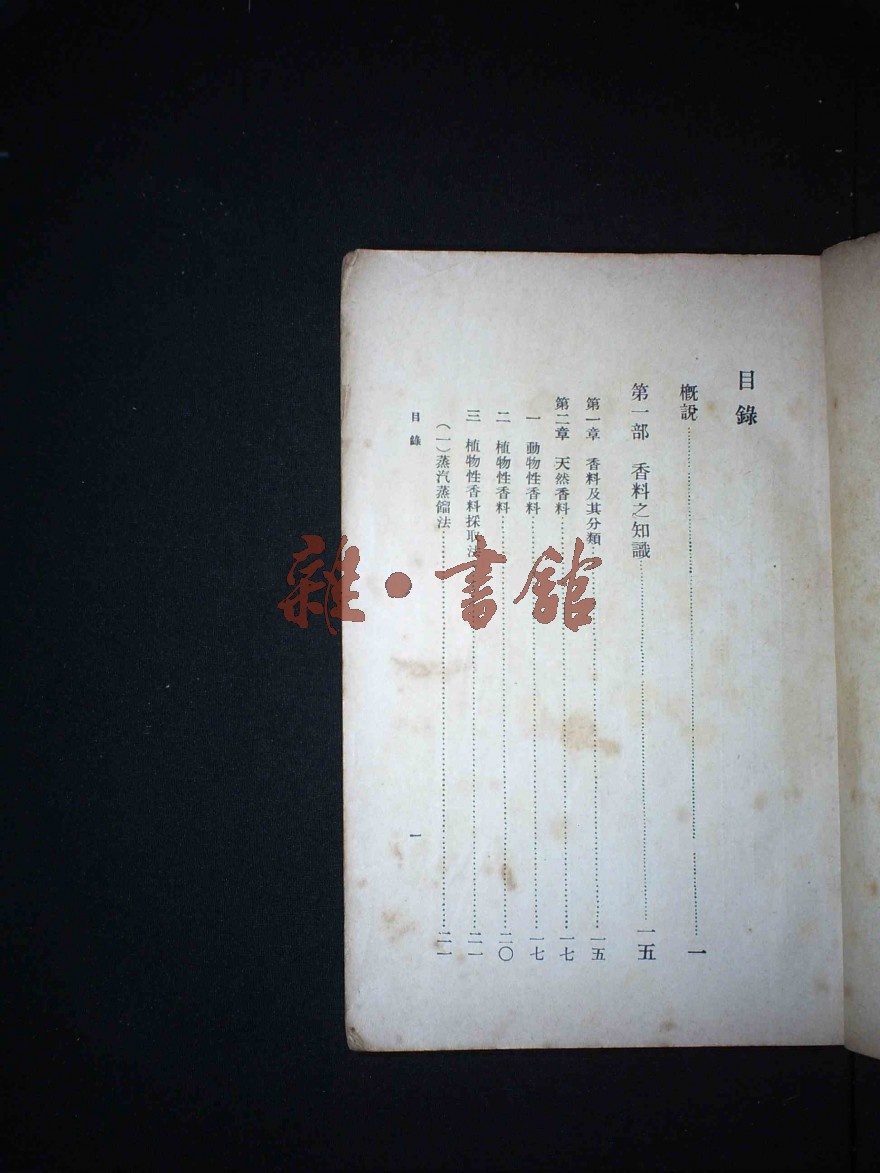 目錄
概說……一
第一部　香料之知識……一五
第一章　香料及其分類……一五
第二章　天然香料……一七
一　動物性香料……一七
二　植物性香料……二〇
三　植物性香料採取法……二一
（一）蒸汽蒸餾法……二一
目錄
一
雜・書館